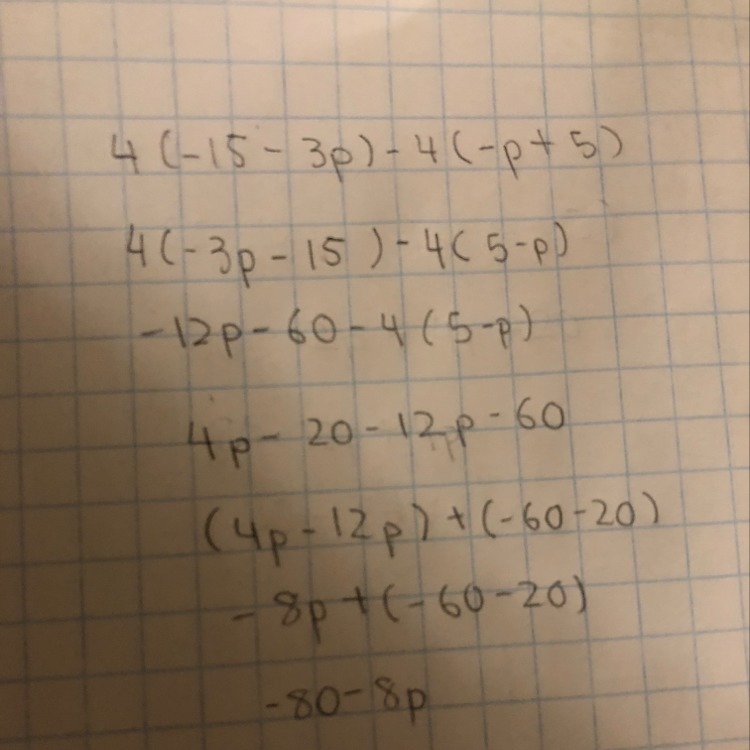 4(-15-3p)-4(-p+5)
4(-3p-15)-4(5-p)
-12p-60-4(5-p)
4p-20-12p-60
(4p-12p)+(-60-20)
-8p+(-60-20)
-80-8p